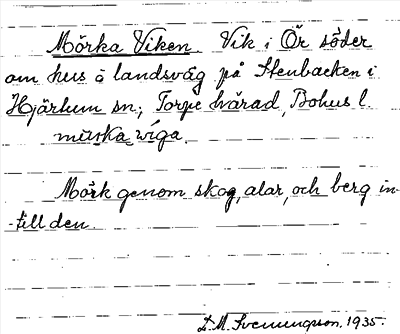 Mörka Viken. Vik i Ör söder
om hus å landsväg på Stenbacken i
Hjärtum sn; Torpe härad, Bohus l.
mörka wiga.
Mörk genom skog, alar, och berg in-
-till den.
D. M. Svenungson, 1935.